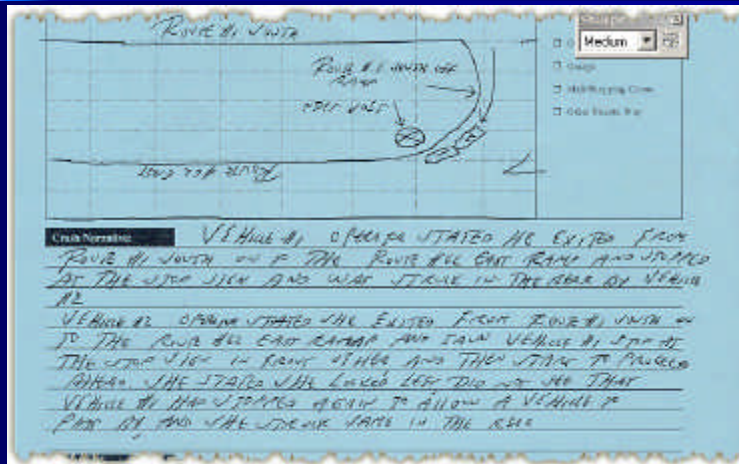 ROUTE #1 SOUTH
Medium
ROUTE #1 SOUTH OFF
RAMP
Garage
Mall/Shopping Center
Other Private Way
EAST
Crash Narrative:
VEHICLE #1 OPERATOR STATED HE EXITED FROM
ROUTE #1 SOUTH ON THE ROUTE EAST RAMP AND STOPPED
AT THE STOP SIGN AND WAS STRUCK IN THE REAR BY VEHICLE
#2
VEHICLE #2 OPERATOR STATED SHE EXITED FROM ROUTE #1 SOUTH ON
TO THE ROUTE EAST RAMP AND SAW VEHICLE #1 STOP AT
THE STOP SIGN IN FRONT OF HER AND THEN START TO PROCEED
AHEAD. SHE STATED SHE LOOKED LEFT DID NOT SEE THAT
VEHICLE #1 HAD STOPPED AGAIN TO ALLOW A VEHICLE TO
PASS BY AND SHE STRUCK SAME IN THE REAR